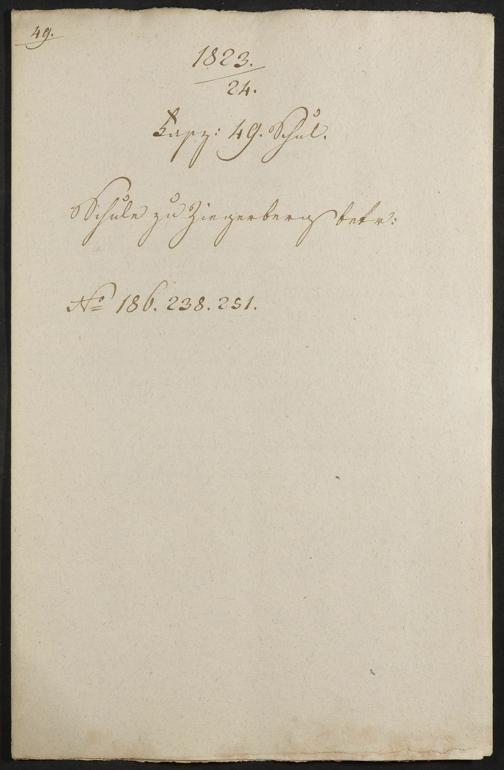 49.
1823.
24.
Kapp: 49. Schul.
Schule zu Ziegerberg betr:
No 186. 238. 251.